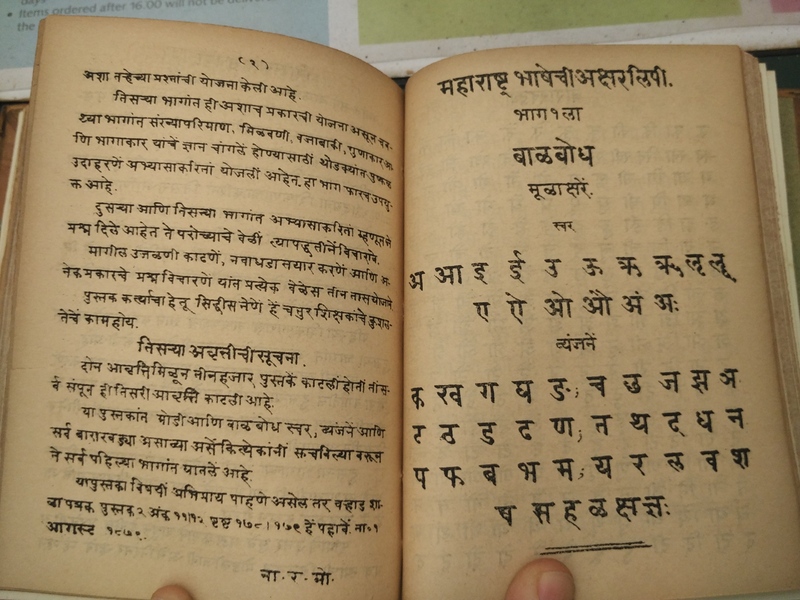 days
• Items ordered after 16.00 will not be
(२)
अशा तऱ्हेच्या प्रश्नांची योजना केली आहे.
तिसऱ्या भागांत ही अशाच प्रकारची योजना असून चव-
थ्या भागांत संख्यापरिमाण, मिळवणी, वजाबाकी, गुणाकार आ-
णि भागाकार यांचें ज्ञान चांगलें होण्यासाठीं थोडक्यांत पुष्कळ
उदाहरणें अभ्यासाकरितां योजलीं आहेत. हा भाग फारच उपयु-
क्त आहे.
दुसऱ्या आणि तिसऱ्या भागांत अभ्यासाकरितां म्हणून जे
प्रश्न दिले आहेत ते परीक्षेच्या वेळीं त्या पद्धतीनें विचारावे.
मागील उजळणी काढणें, नवा धडा तयार करणें आणि अ-
नेक प्रकारचे प्रश्न विचारणें यांत प्रत्येक वेळेस तीन तास योजावे
पुस्तक कर्त्याचा हेतू सिद्धीस नेणें हें चतुर शिक्षकांचे कुशल-
तेचें काम होय.
तिसऱ्या आवृत्तीची सूचना.
दोन आवृत्ति मिळून तीन हजार पुस्तकें काढलीं होतीं तीं स-
र्व संपून ही तिसरी आवृत्ति काढली आहे.
या पुस्तकांत मोडी आणि बाळ बोध स्वर, व्यंजनें आणि
सर्व बाराखड्या असाव्या असें कित्येकांनीं सुचविल्या वरून
ते सर्व पहिल्या भागांत घातलें आहे.
या पुस्तका विषयीं अभिप्राय पाहणे असेल तर वऱ्हाड शा-
ळा पत्रक पुस्तक २ अंक ११।१२ पृष्ट १७८।१७९ हें पहावें. ता. १
आगस्ट १८७०.
ना. र. मो.
महाराष्ट्र भाषेची अक्षरलिपी.
भाग १ ला
बाळबोध
मूळाक्षरें.
स्वर
अ आ इ ई उ ऊ ऋ ॠ ऌ ॡ
ए ऐ ओ औ अं अः
व्यंजनें
क ख ग घ ङ; च छ ज झ ञ
ट ठ ड ढ ण; त थ द ध न
प फ ब भ म; य र ल व श
ष स ह ळ क्ष ज्ञः